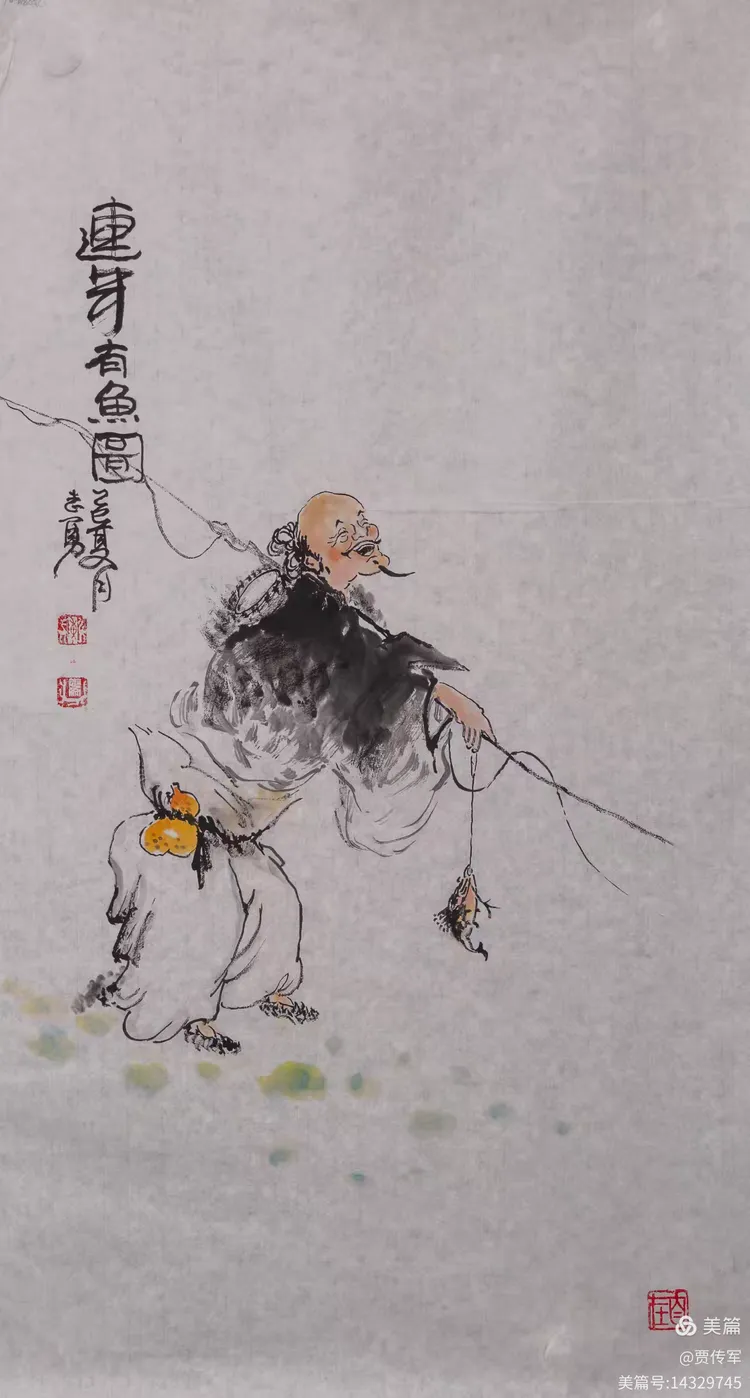 連年有魚圖
夏月
志勇
美篇
@贾传军
美篇号:14329745